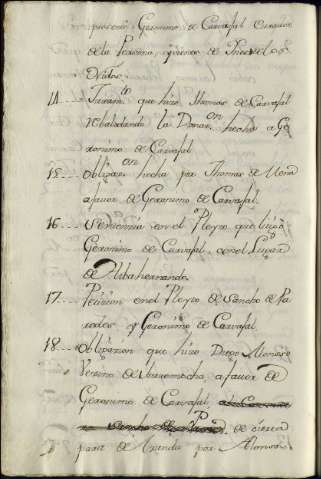 presente, Geronimo de Carvajal
de la Persona, y vienes de
14.... Juram.to que hizo Thomas de Carvajal
la Donac.on hecha a Ge
ronimo de Carvajal
15.... Obligaz.on hecha por Thomas de Mena
afavor de Geronimo de Carvajal.
16.... Sentencia en el Pleyto que litigò
Geronimo de Carvajal, con el Lugar
de Albahernando
17.... Peticion en el Pleyto de Sancho de Pa
redes, y Geronimo de Carvajal.
18.... Obligazion que hizo Diego Alonso
Vecino de afavor de
Geronimo de Carvajal
de cierta
parte de Azienda por